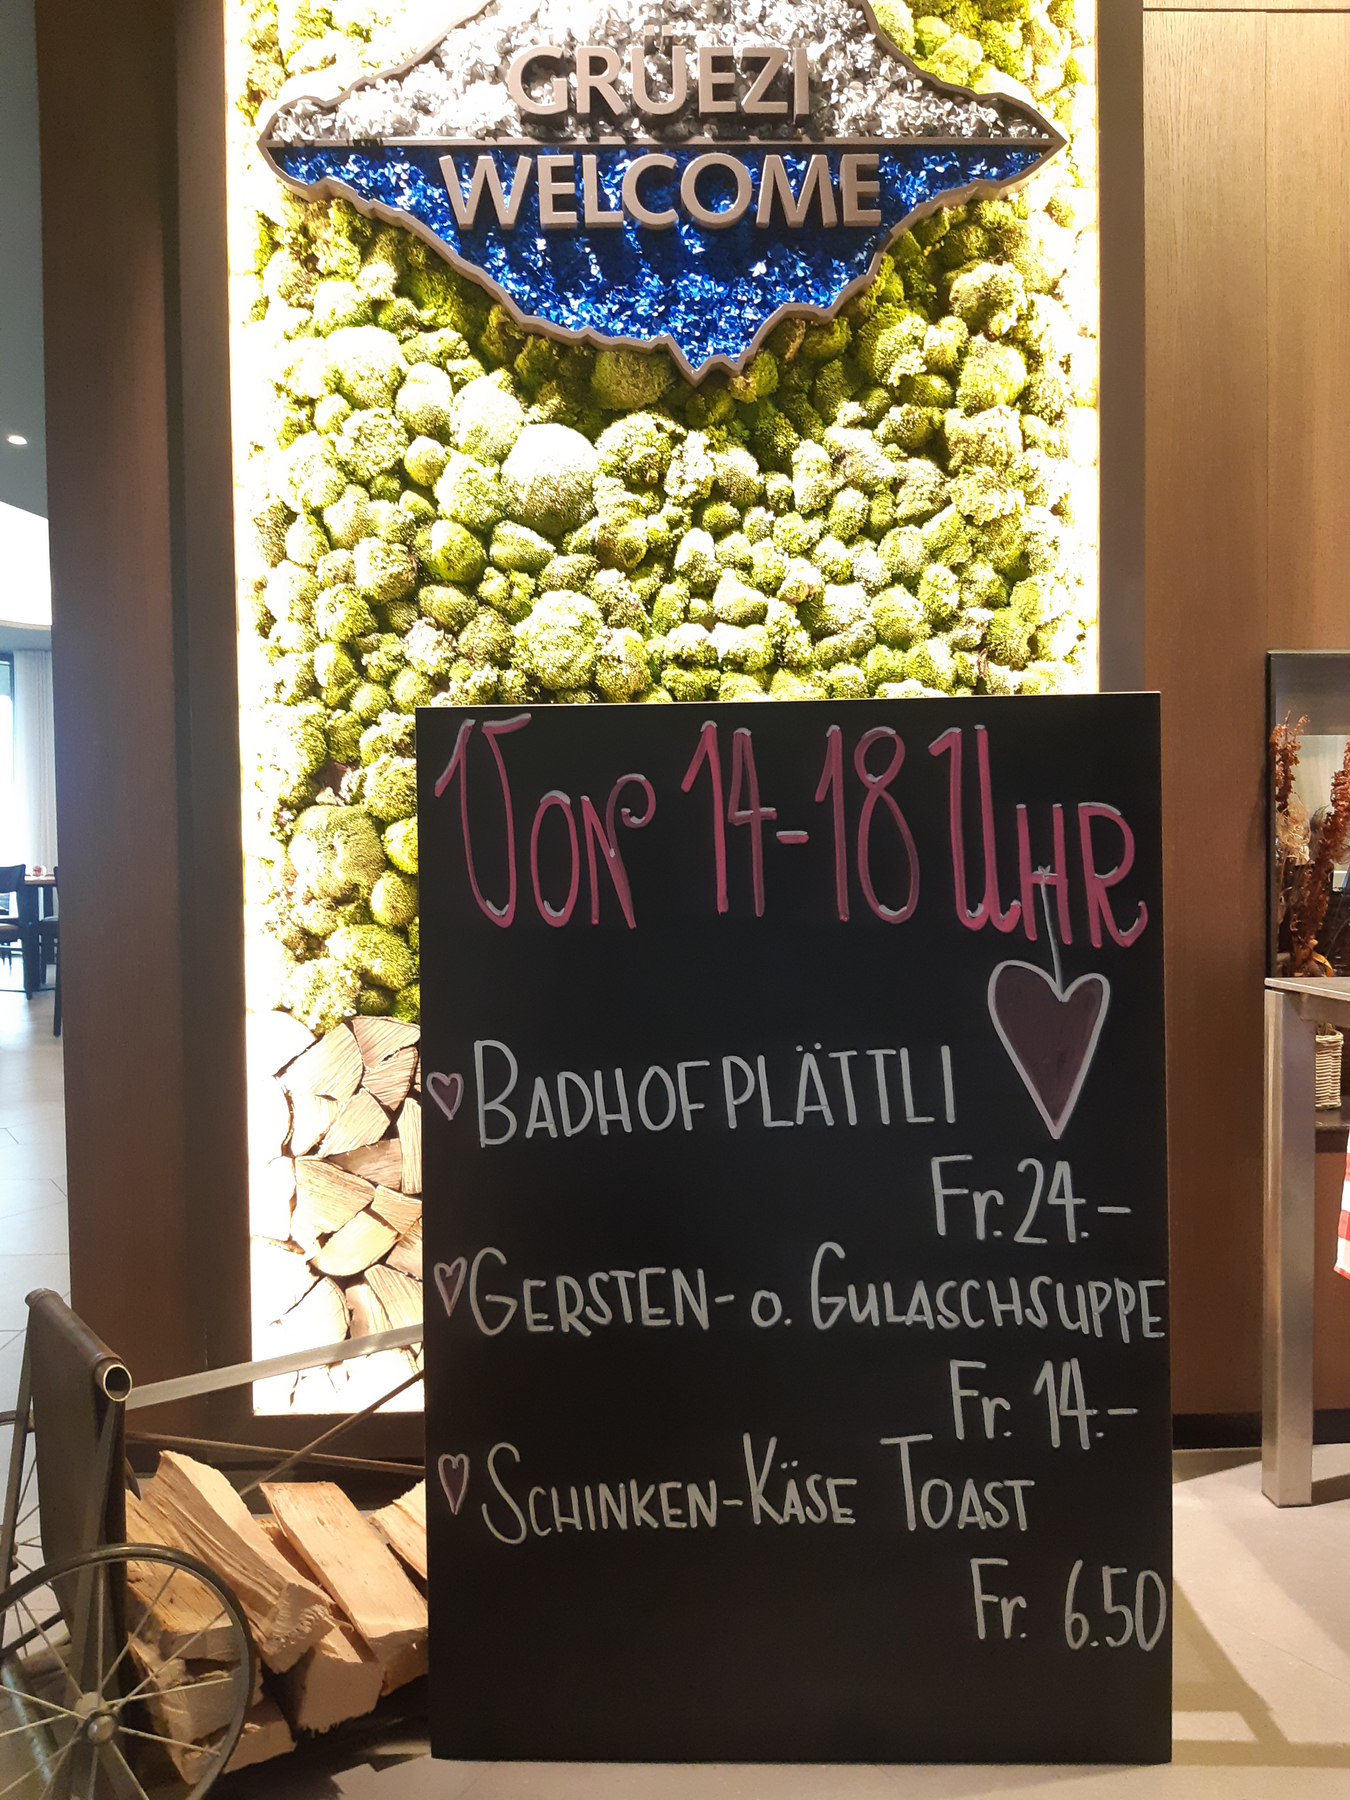 GRÜEZI
WELCOME
Von 14-18 Uhr
BADHOFPLÄTTLI
Fr. 24.-
GERSTEN- o. GULASCHSUPPE
Fr. 14.-
SCHINKEN-KÄSE TOAST
Fr. 6.50